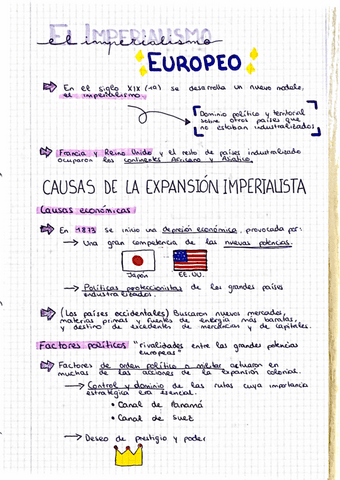 El Imperialismo
el imperialismo
EUROPEO
En el siglo XIX (→a) se desarrolla un nuevo modelo,
el imperialismo.
Dominio político y territorial
sobre otros países que
no estaban industrializados
Francia y Reino Unido y el resto de países industralizado
ocuparon los continentes Africano y Asiático.
CAUSAS DE LA EXPANSIÓN IMPERIALISTA
Causas económicas
En 1873 se inicio una depresión económica, provocada por:
→ Una gran competencia de las nuevas potencias.
Japón
EE.UU.
→ Políticas proteccionistas de los grandes países
industralizados.
(Los países occidentales) Buscaron nuevos mercados,
materias primas y fuentes de energía más baratas,
y destino de excedentes de mercancía y de capitales.
Factores políticos "rivalidades entre las grandes potencias
europeas"
Factores de orden político o militar actuaron en
muchas de las acciones de la expansión colonial.
→ Control y dominio de las rutas cuya importancia
estratégica era esencial.
• Canal de Panamá
• Canal de Suez
→ Deseo de prestigio y poder